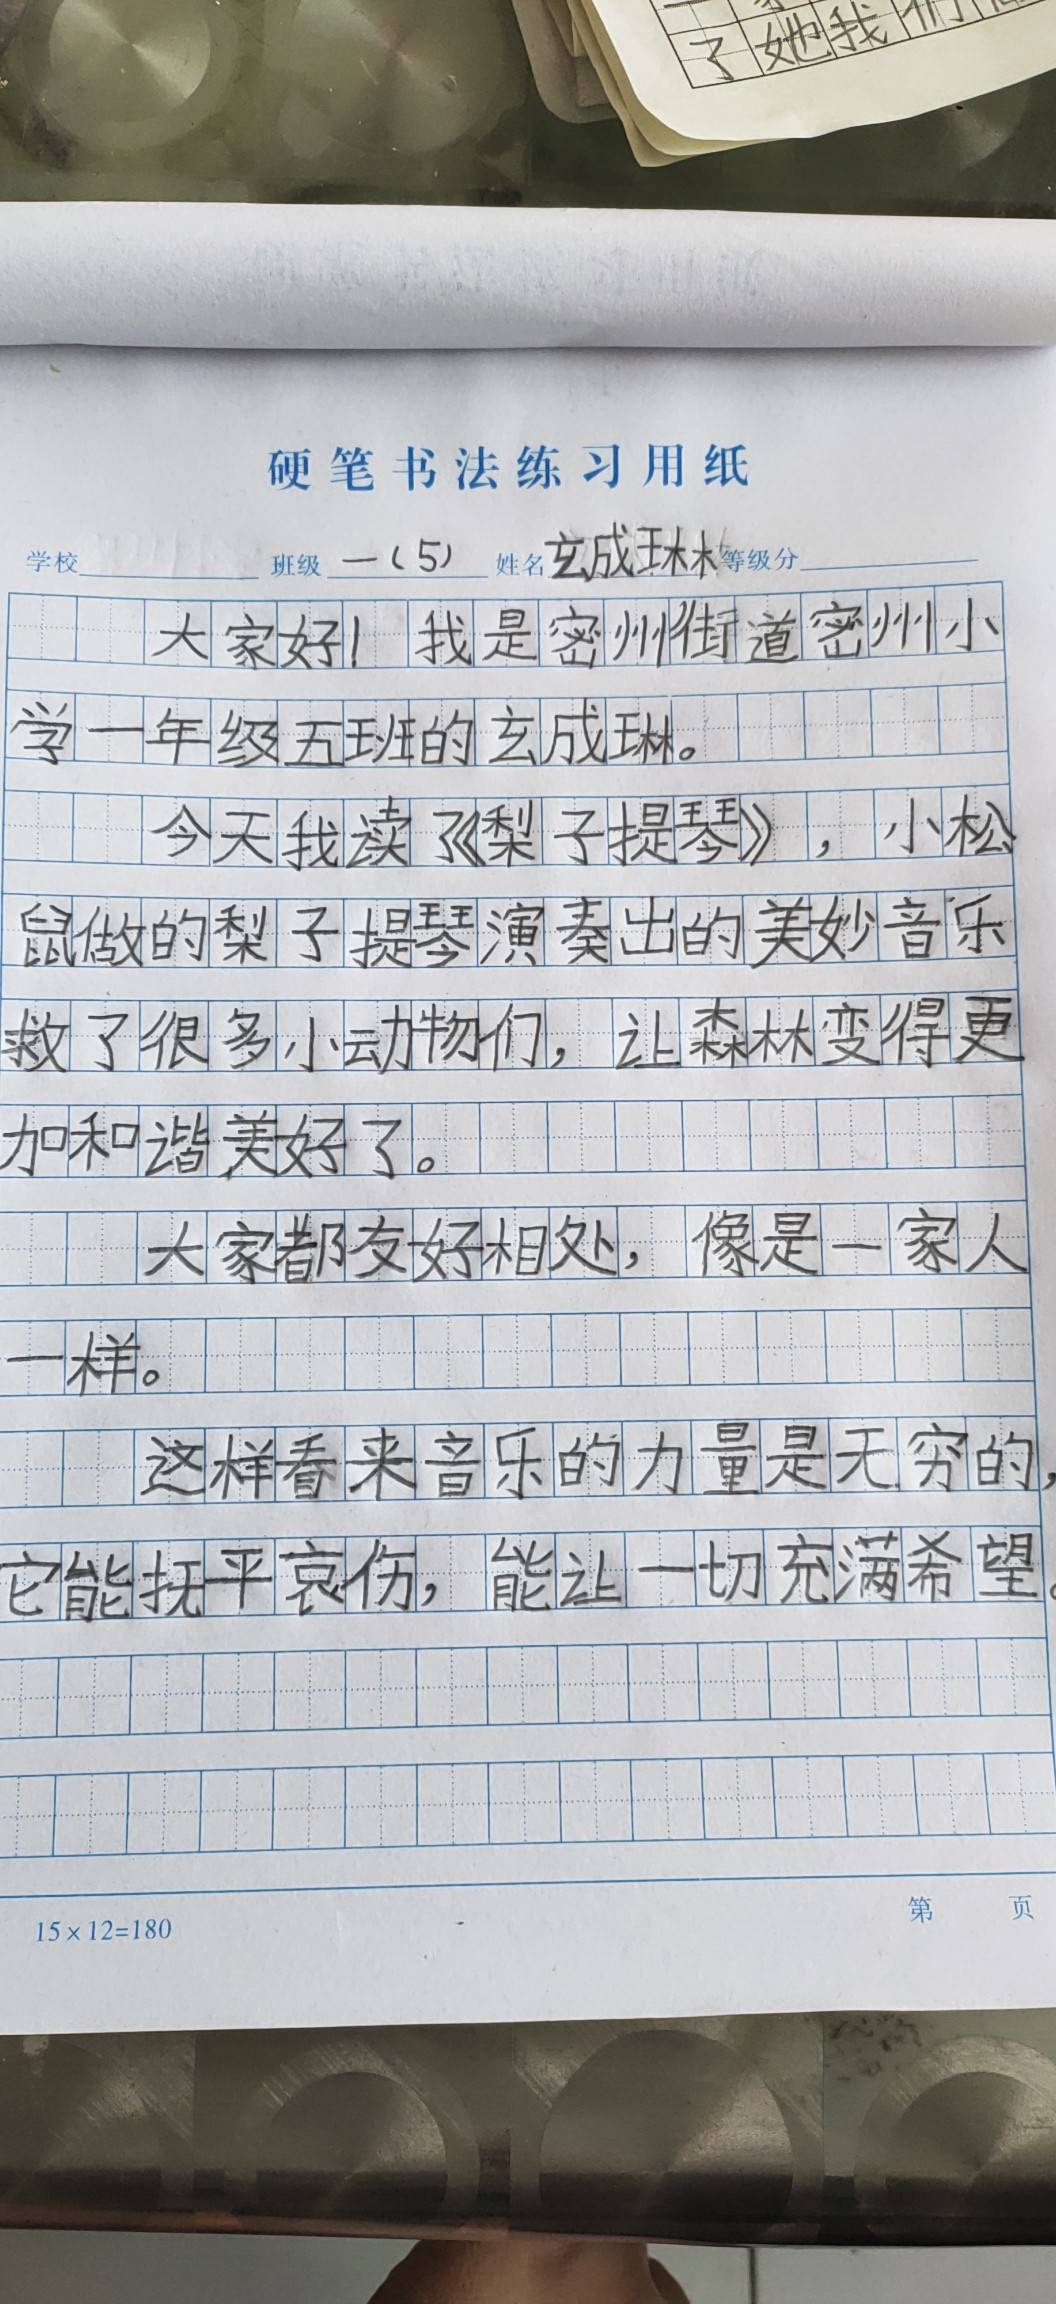 了她我们
硬笔书法练习用纸
学校 班级 一(5) 姓名 玄成琳 等级分
大家好！我是密州街道密州小
学一年级五班的玄成琳。
今天我读了《梨子提琴》，小松
鼠做的梨子提琴演奏出的美妙音乐
救了很多小动物们，让森林变得更
加和谐美好了。
大家都友好相处，像是一家人
一样。
这样看来音乐的力量是无穷的，
它能抚平哀伤，能让一切充满希望。
15×12=180
第 页